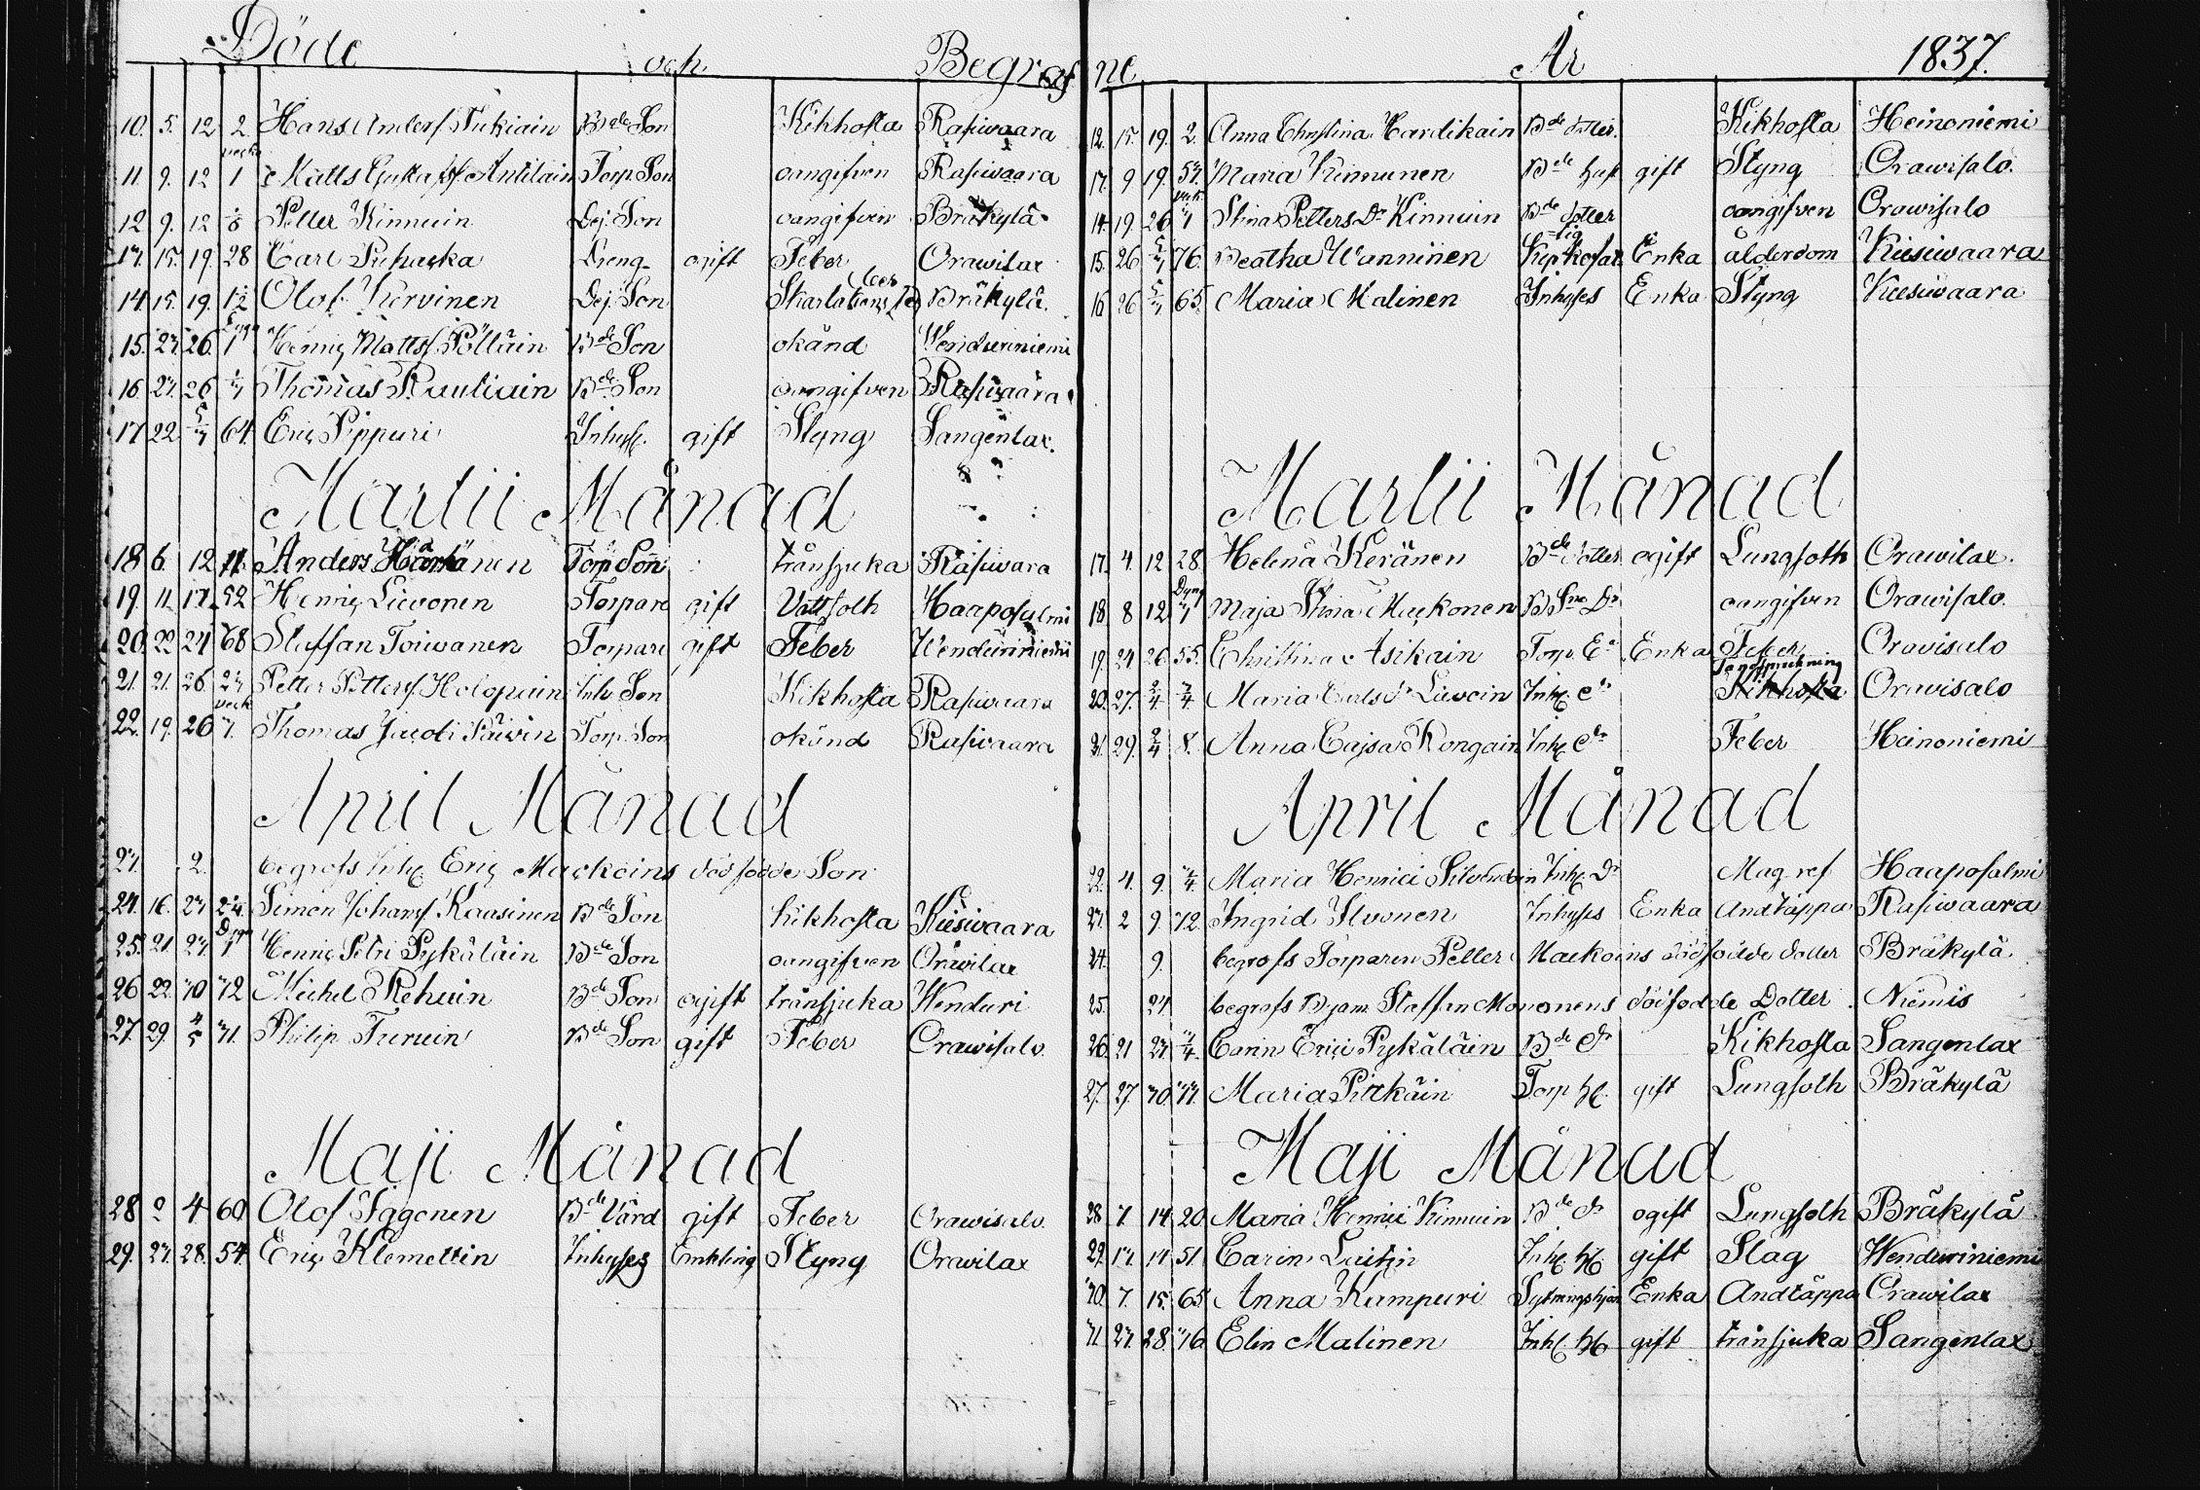 Döde och Begrafne År 1837.
10. 5. 12 2. Hans Anderss. Bde Son Kikhosta Rasiwaara
11. 9. 12 1 Matts Torp. Son oangifven Rasiwaara
12 9. 12 Petter Kinnuin Dej. Son oangifven Bräkylä
15. 19. 28 Carl Puhacka Dreng ogift Feber Orawilax
14. 15. 19. ½ Olof Kervinen Dej. Son Bräkylä.
15. 26. Henric Mattss. Pölläin Bde Son okänd Wenduriniemi
16. 26 Thomas Rautiain Bde Son oangifven Rasiwaara
17 22 64. Eric Pippuri Inhys. gift Styng Sangenlax.
Martii Månad
18 6. 12 Anders Torp. Son trånsjuka Rasiwara
19. 11. 17. 52 Henric Liwonen Torpare gift Vattsoth Haaposalmi
20. 22 24 68 Staffan Toiwanen Torpare gift Feber Wenduriniemi
21. 21. 26. Petter Petterss. Holopain Inh. Son Kikhosta Rasiwaara
22. 19. 26 Thomas Jacobi Päivin Torp. Son okänd Rasiwaara
April Månad
2. begrofs Inh. Eric Mackoins dödfödde Son
24. 16. Simon Johanss. Kaasinen Bde Son kikhosta Kiesiwaara
25. 21 Henric Petri Pykäläin Bde Son oangifven Orawilax
26 22. 72 Michel Rehuin Bde Son ogift trånsjuka Wenduri
27. 29. 4/5 71. Philip Turuin Bde Son gift Feber Orawisalo.
Maji Månad
28 2 4 60 Olof Iggonen Bde Värd gift Feber Orawisalo
29. 28. 54. Eric Klemettin Inhyses Enkling Styng Orawilax
12. 15. 19. 2. Anna Christina Bde dotter. Kikhosta Heinoniemi
9 19. Maria Kinnunen Bde hust gift Styng Orawisalo.
14. 19. 26 Stina Petters Dr Kinnuin Bde dotter oangifven Orawisalo
15. 26 76. Beatha Wanninen Enka ålderdom Kiesiwaara
16 26 65. Maria Malinen Inhyses Enka Styng Kiesiwaara
Martii Månad
17. 4. 12 28. Helena Keränen Bde dotter ogift Lungsoth Orawilax.
18. 8 12 Maja Stina Mackonen oangifven Orawisalo.
19. 24 26. 55. Christina Asikain Torp. Ea Enka Feber Oravisalo
20. 27. 2/4 ¾ Maria Carls Dr Liwoin Inh. Dr Kikhosta Oravisalo
21. 29. 2/4 8. Anna Cajsa Rongain Inh. Dr Feber Heinoniemi
April Månad
22. 4. 9. Maria Henrici Silvendoin Inh. Dr Mag. ref Haaposalmi
2 9 72. Ingrid Ilvonen Inhyses Enka Andtäppa Rasiwaara
24. 9. begrofs Torparen Petter Mackoins dödfödde dotter Bräkylä
25. 24 begrofs Staffan Mononens dödfödde Dotter. Niemis
26. 21 Carin Erici Pykäläin Bde Dr Kikhosta Sangenlax
27. 27 30 Maria Pitkäin Torp. h. gift Lungsoth Bräkylä
Maji Månad
28. 7. 14 20 Maria Henrici Kinnuin Bde Dr ogift Lungsoth Bräkylä
29. 51 Carin Inh. h. gift Slag Wenduriniemi
30. 7. 15. 65. Anna Kumpuri Enka Andtäppa Orawilax
31. 28. 76. Elin Malinen Inh. h. gift trånsjuka Sangenlax